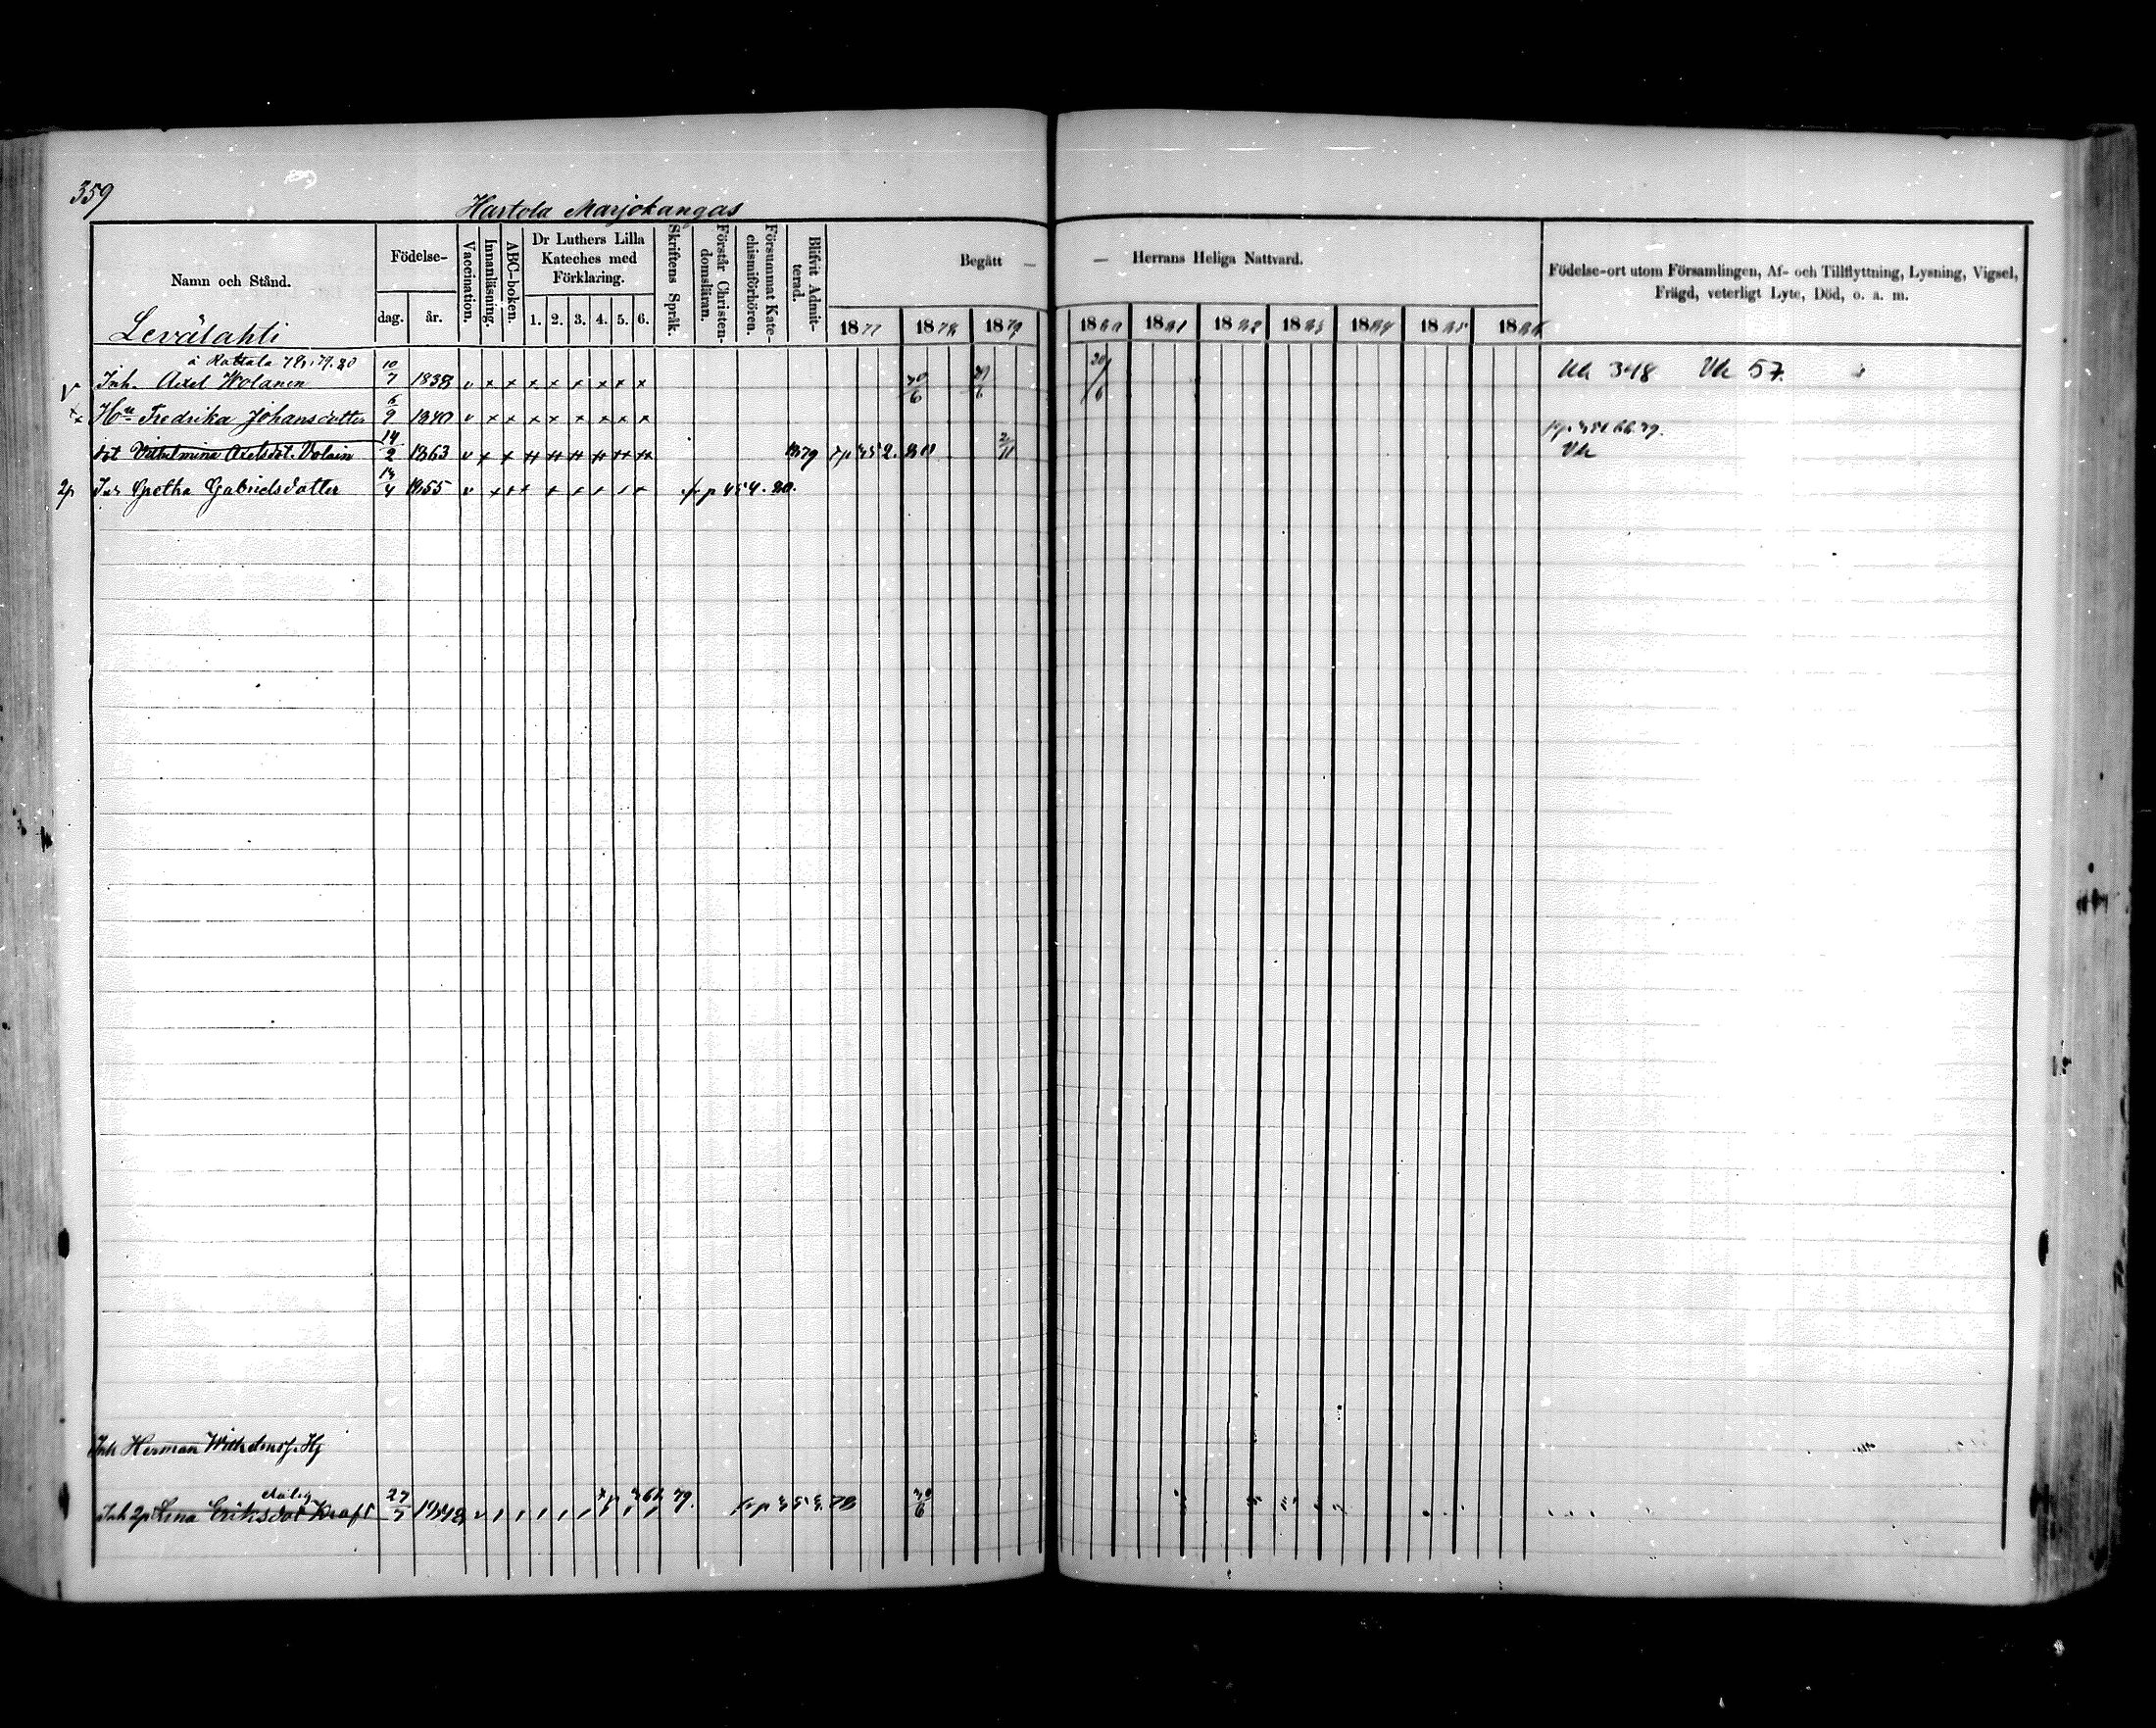 359
Hartola Marjokangas
Namn och Stånd.
Födelse-
dag.
år.
Vaccination.
Innanläsning.
ABC-boken.
Dr Luthers Lilla
Kateches med
Förklaring.
1. 2. 3. 4. 5. 6.
Skriftens Språk.
Förstår Christen-
domsläran.
Försummat Kate-
chismiförhören.
Blifvit Admit-
terad.
Begått — — Herrans Heliga Nattvard.
1877 1878 1879 1880 1881 1882 1883 1884 1885 1886
Födelse-ort utom Församlingen, Af- och Tillflyttning, Lysning, Vigsel,
Frägd, veterligt Lyte, Död, o. a. m.
Levälahti
å Rattala 78.79.80
Inh. Axel Wolanen 10/7 1838 v x x x x x x x x 30/6 29/6 20/6 Uh 348 Vh 57.
Hu Fredrika Johansdotter 6/9 1840 v x x x x x x x x
dot Vilhelmina Axelsdot. Volain 14/2 1863 1879 2/11 Vh
2p Gretha Gabrielsdotter 1855 fr p 454. 80.
Inh Herman Wilhelmsf. Hj
Inh 2p Lina Eriksdot Kraft 27/5 1848 79. 78 30/6